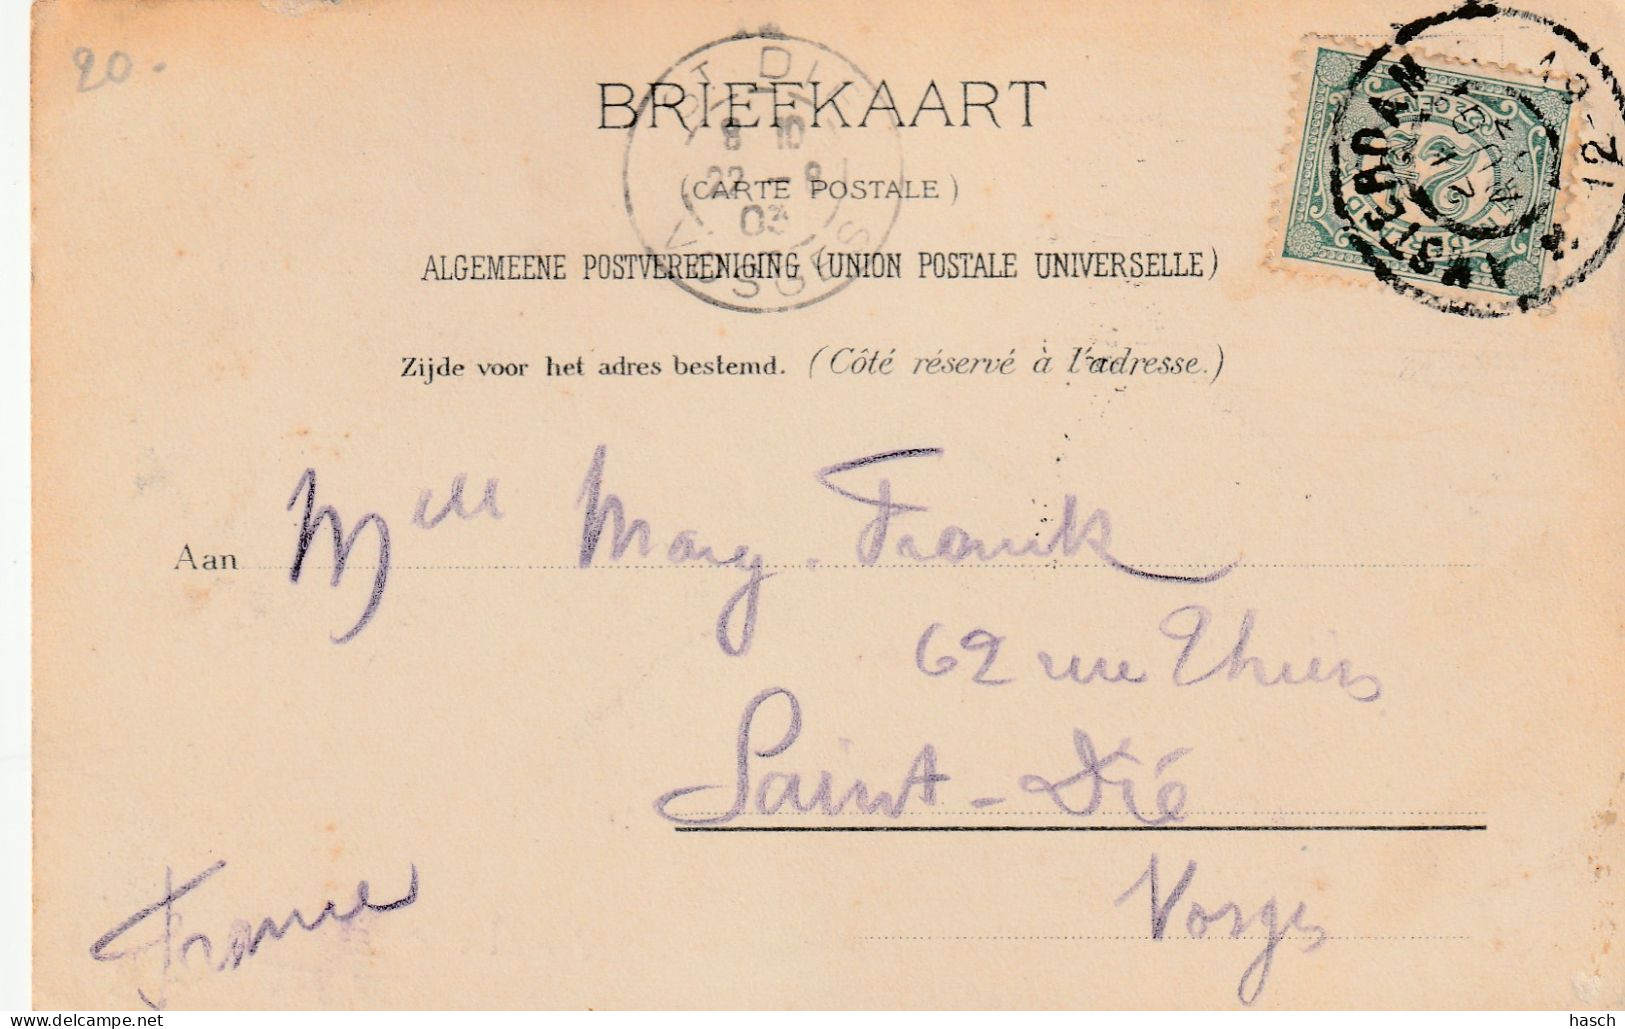 20.
BRIEFKAART
(CARTE POSTALE)
ALGEMEENE POSTVEREENIGING (UNION POSTALE UNIVERSELLE)
Zijde voor het adres bestemd. (Côté réservé à l'adresse.)
ST DIÉ
8 10
22 - 8
03
VOSGES
AMSTERDAM
12-
Aan Mlle Mary. Franck
62 rue Thiers
Saint-Dié
Vosges
France
delcampe.net
hasch